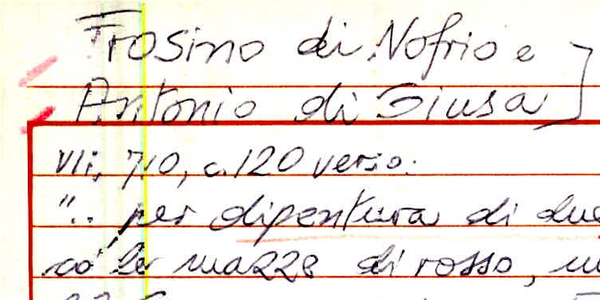 Frosino di Nofrio e
Antonio di Giusa]
VII, 710, c. 120 verso.
".. per dipentura di due
cō le mazze di rosso,